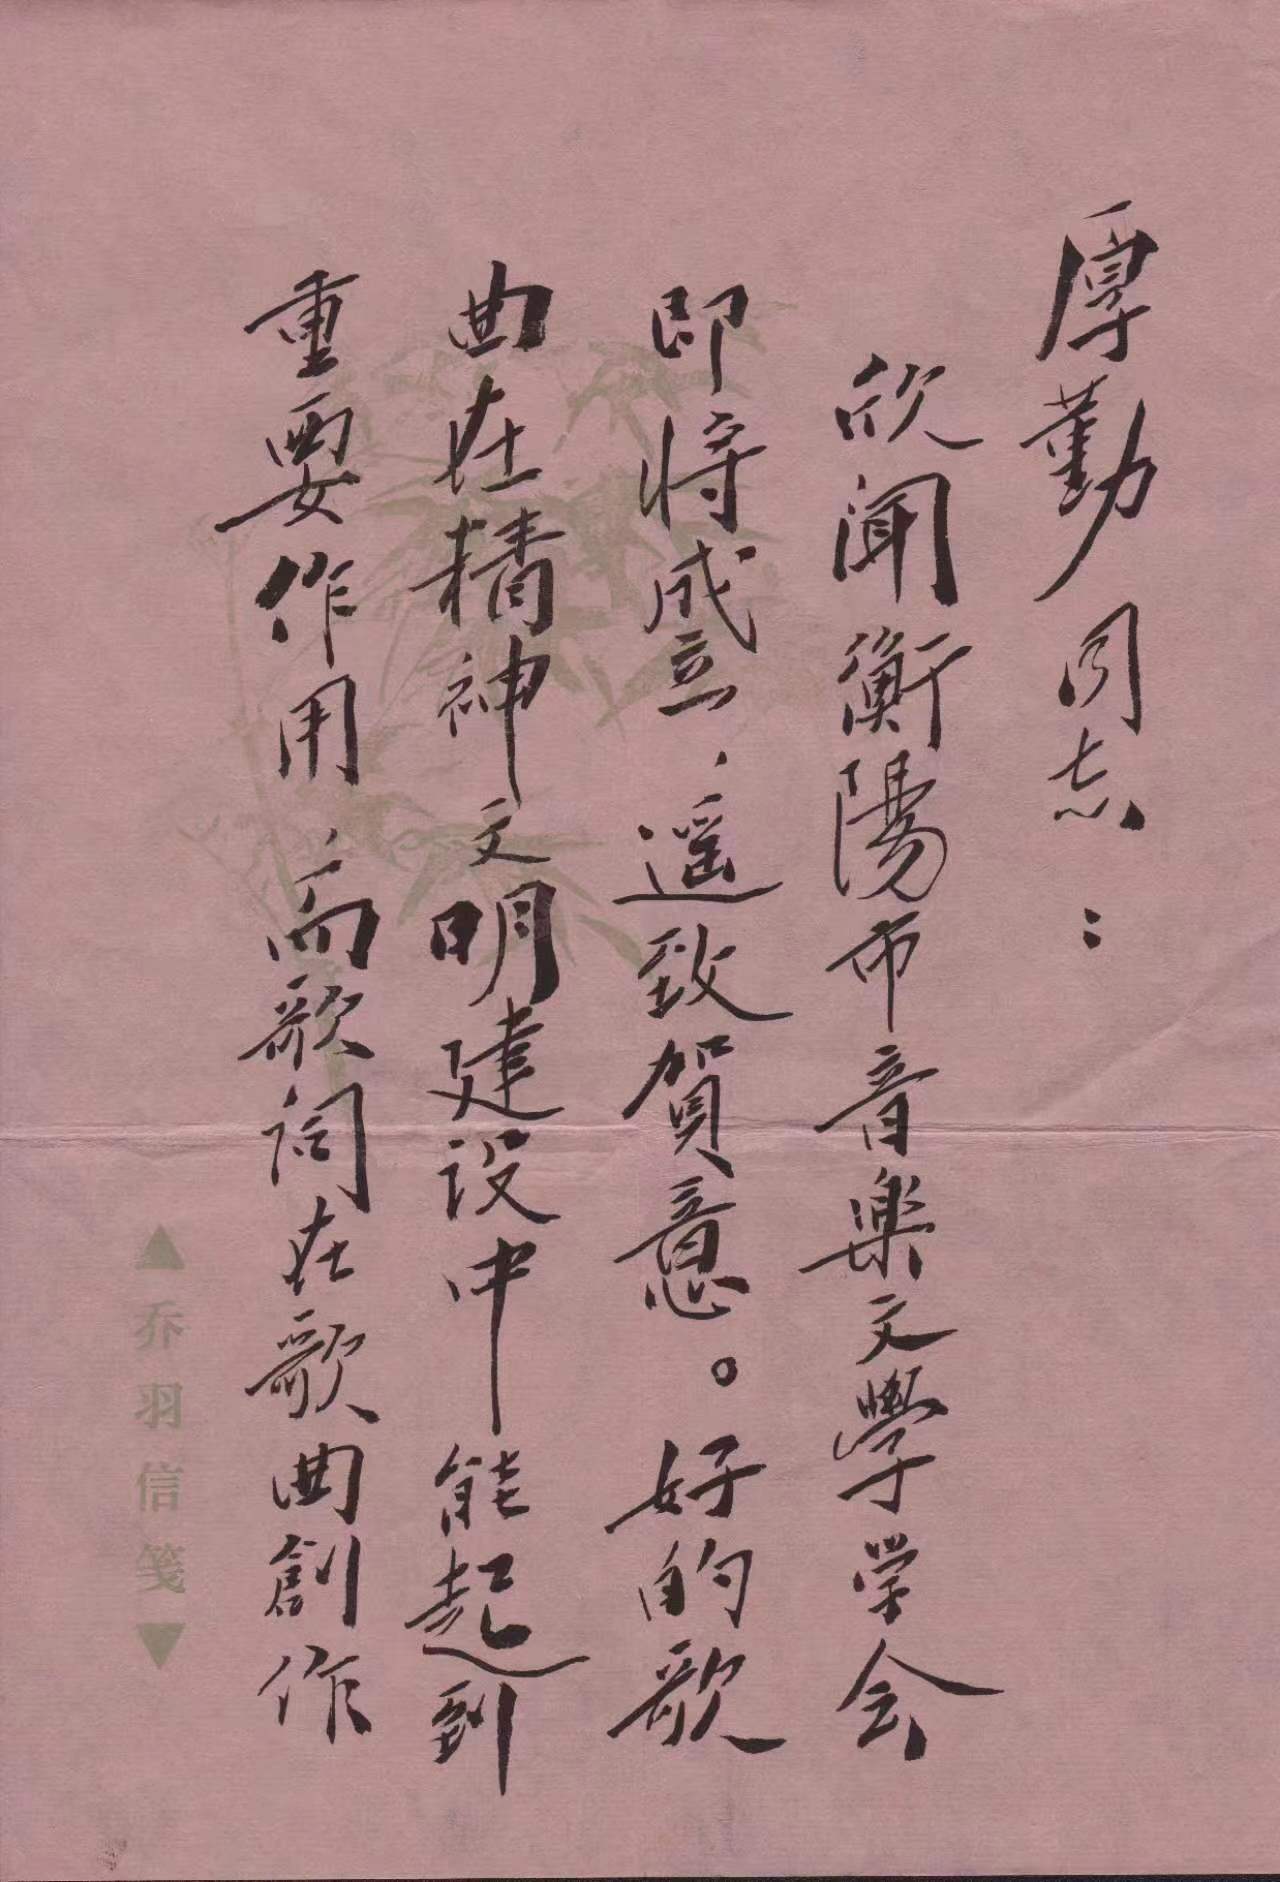 厚勤同志：
欣闻衡陽市音樂文學学会
即将成立，遥致賀意。好的歌
曲在精神文明建设中能起到
重要作用，而歌词在歌曲創作
▲乔羽信笺▼